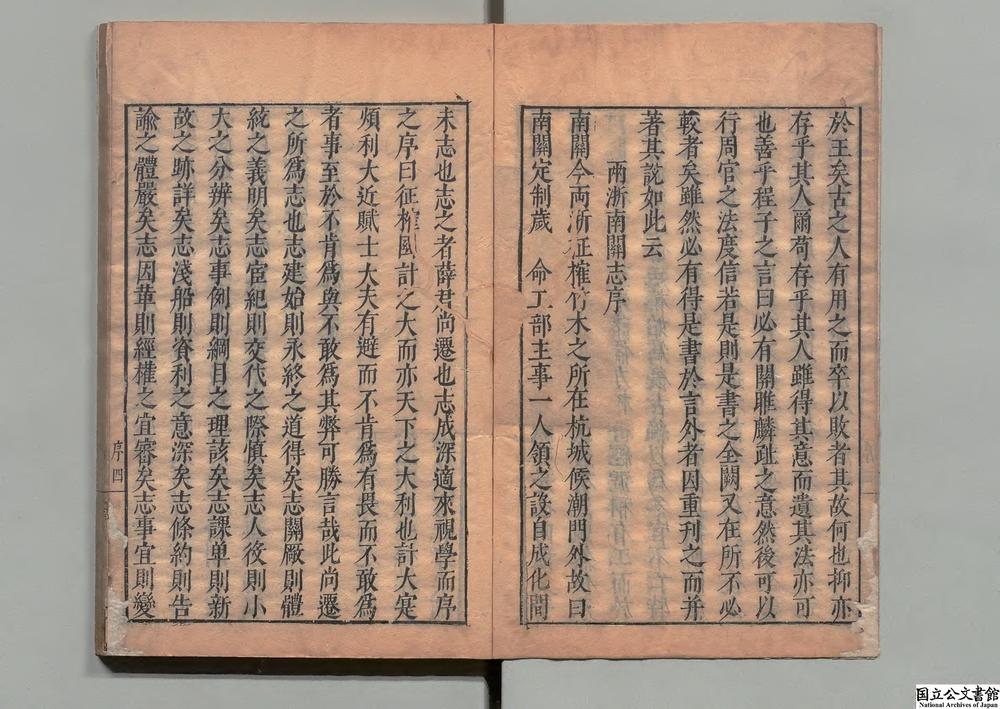 於王矣古之人有用之而卒以敗者其故何也抑亦
存乎其人爾荷存乎其人雖得其意而遺其法亦可
也善乎程子之言曰必有關雎麟趾之意然後可以
行周官之法度信若是則是書之全闕又在所不必
較者矣雖然必有得是書於言外者因重刊之而并
著其說如此云
兩浙南關志序
南關今兩浙征榷竹木之所在杭城候潮門外故曰
南關定制歲 命工部主事一人領之設自成化間
未志也志之者薛君尚遷也志成深適來視學而序
之序曰征榷國計之大而亦天下之大利也計大寔
煩利大近賦士大夫有避而不肯爲有畏而不敢爲
者事至於不肯爲與不敢爲其弊可勝言哉此尚遷
之所爲志也志建始則永終之道得矣志關厰則體
統之義明矣志宦紀則交代之際慎矣志人役則小
大之分辨矣志事例則綱目之理該矣志課单則新
故之跡詳矣志淺船則資利之意深矣志條約則告
諭之體嚴矣志因革則經權之宜審矣志事宜則變
序 四
国立公文書館
National Archives of Japan